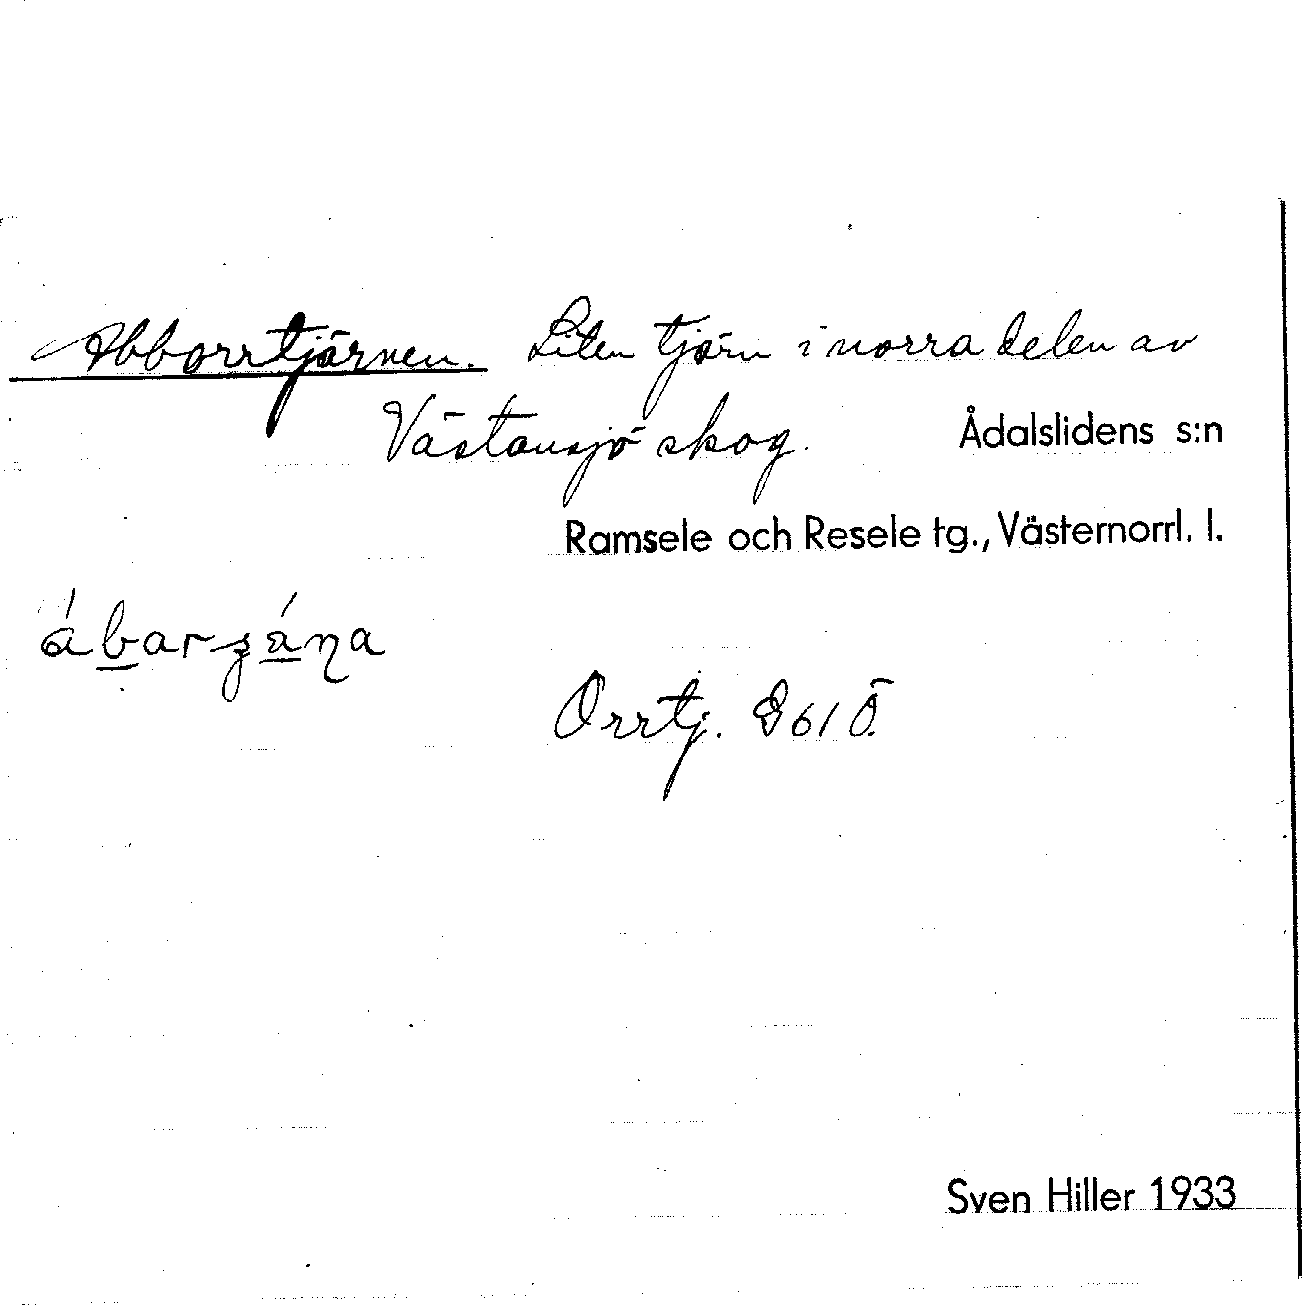 Abborrtjärnen. Liten tjärn i norra delen av
Västansjö skog. Ådalslidens s:n
Ramsele och Resele tg., Västernorrl. l.
Orrtj. G 61 Ö
Sven Hiller 1933